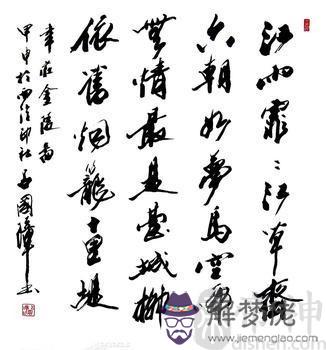 江雨霏〻江草齊
六朝如夢鳥空啼
無情最是臺城柳
依舊烟籠十里堤
韋莊金陵圖
甲申於西泠印社 國璋書
解梦佬
jiemenglao.com